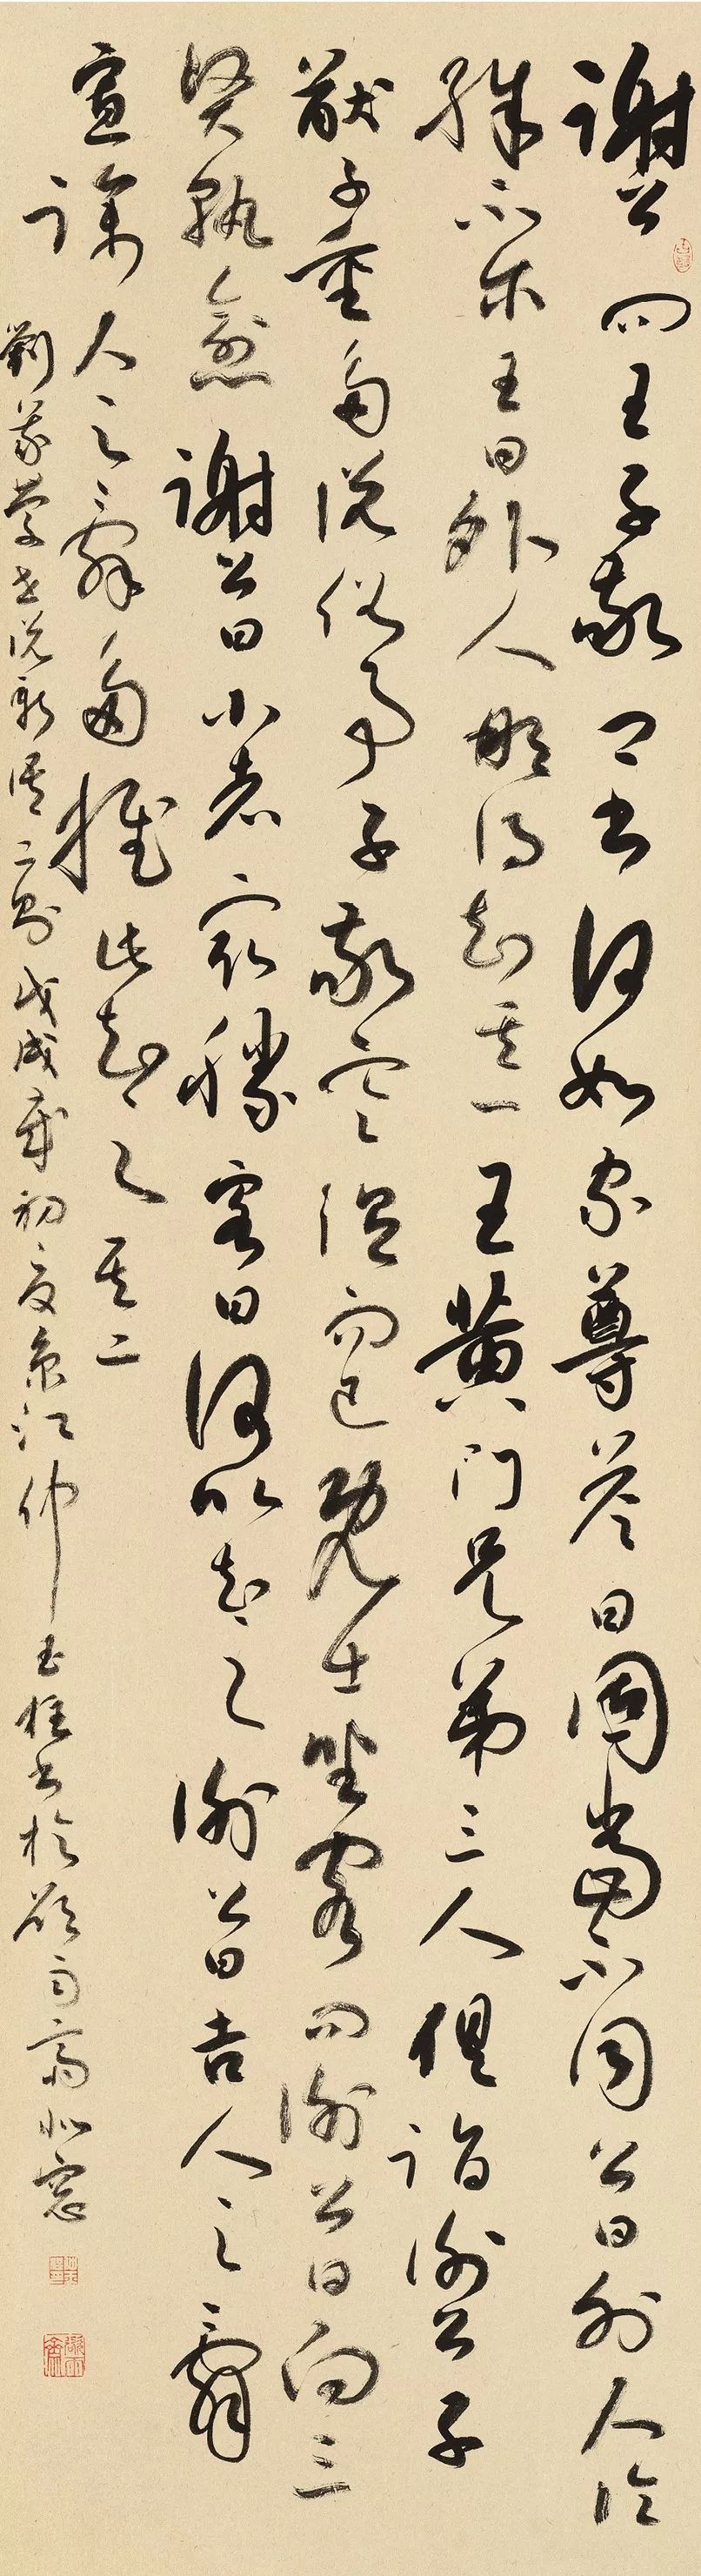 謝公問王子敬君書何如家尊答曰固當不同公曰外人論
殊不尔王曰外人那得知其一王黃門兄弟三人俱詣謝公子
猷子重多說俗事子敬寒溫而已既出坐客問謝公曰向三
賢孰愈謝公曰小者最勝客曰何以知之謝公曰吉人之辭
寡躁人之辭多推此知之其二
劉義慶世說新語二則戊戌歲初夏京江仲 書於 雨齋北窓